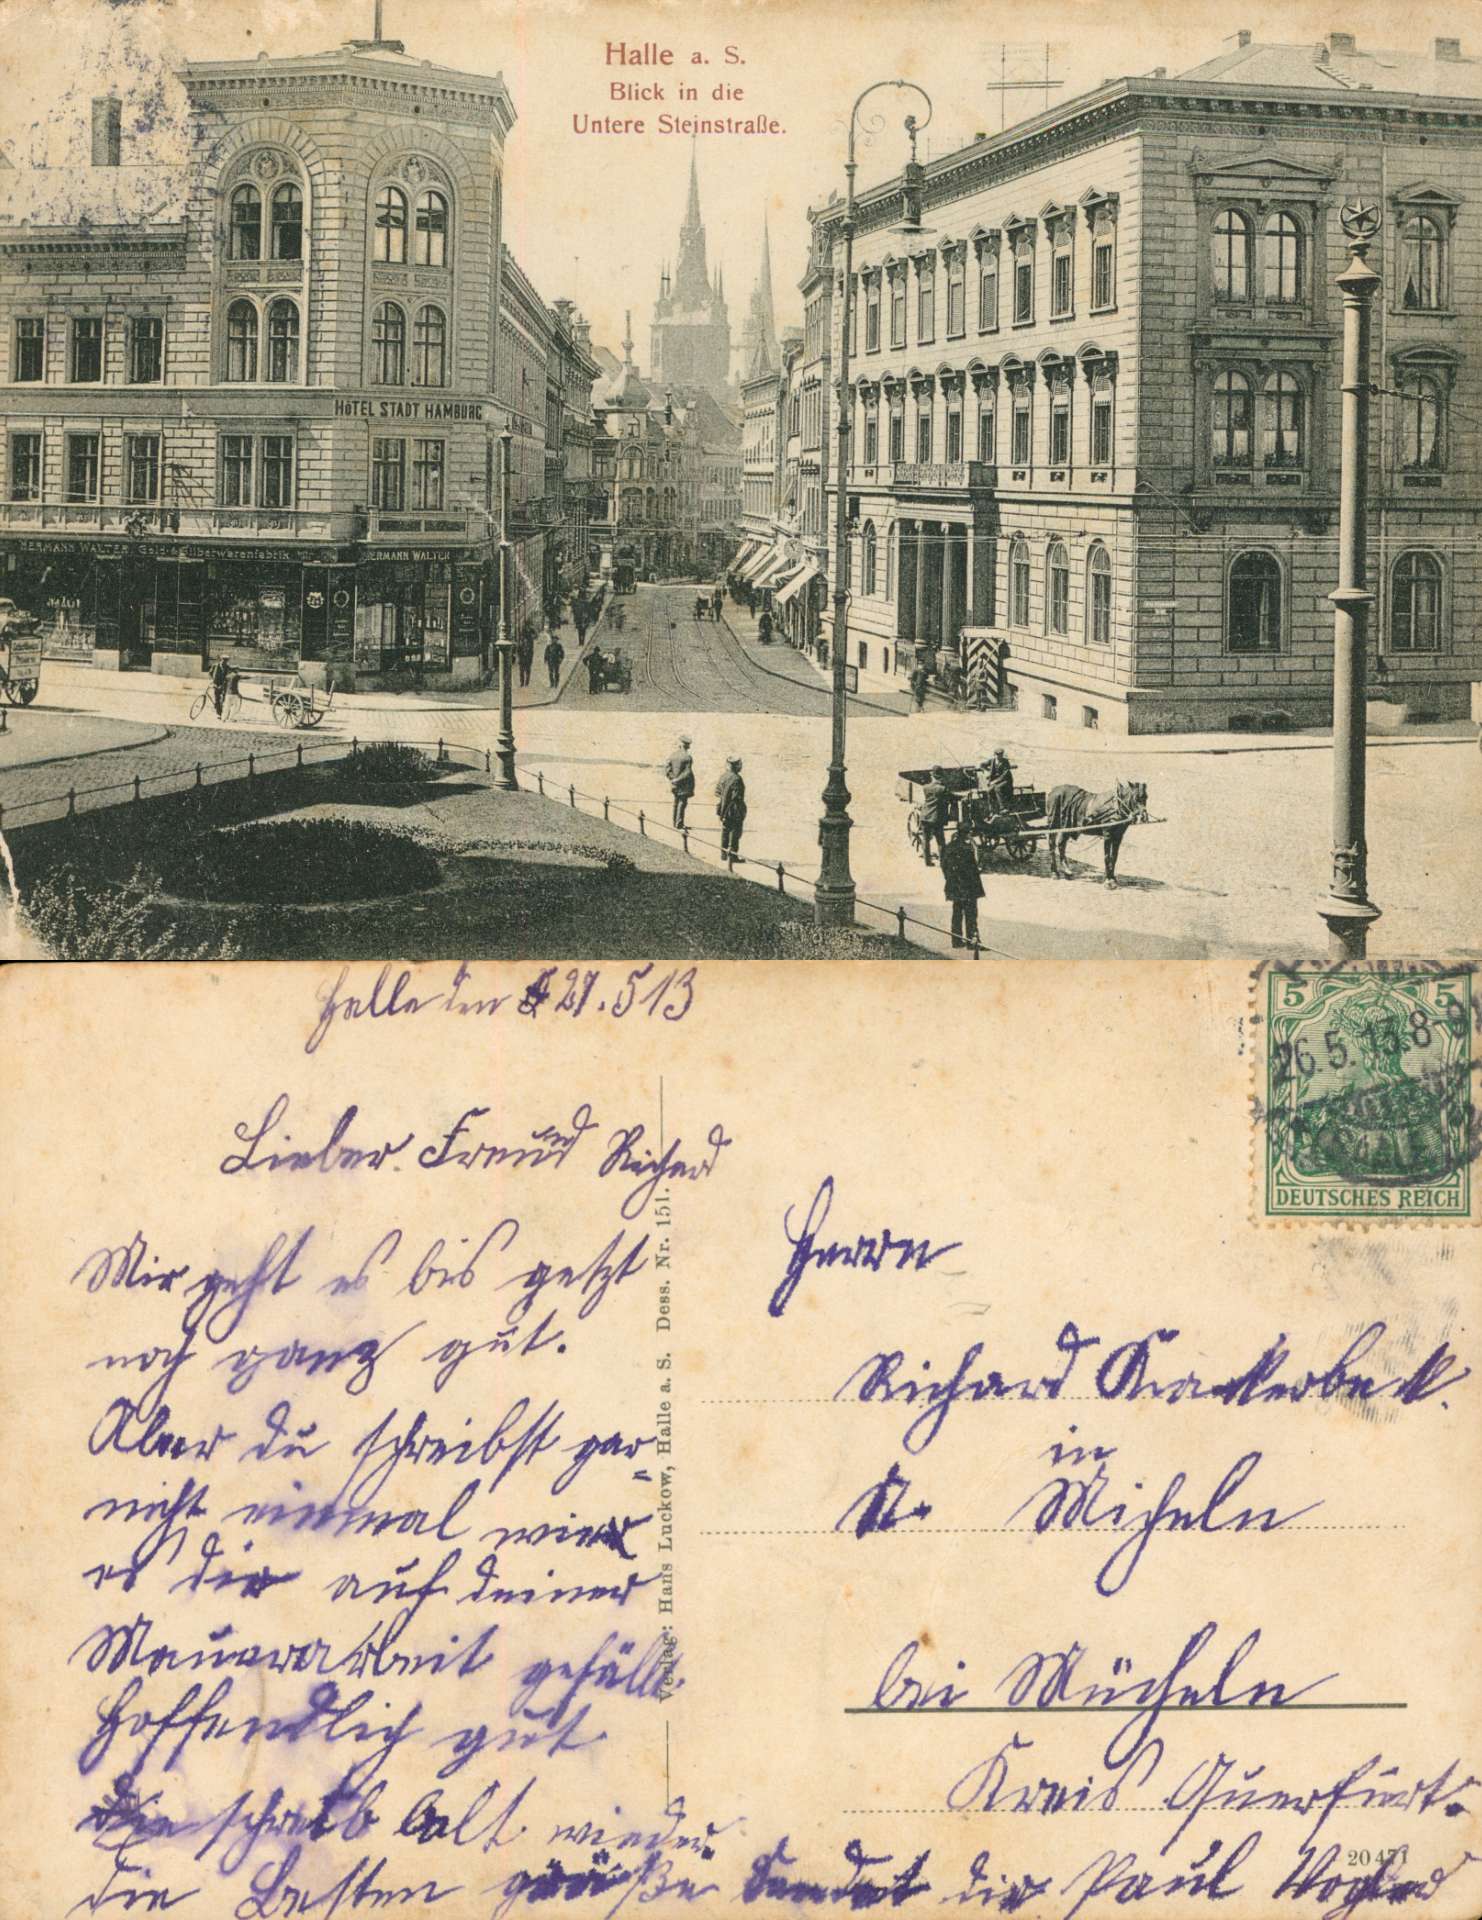 Halle a. S.
Blick in die
Untere Steinstraße.
HÔTEL STADT HAMBURG
HERMANN WALTER Gold- & Silberwarenfabrik
HERMANN WALTER
Halle den 27. 5 13
DEUTSCHES REICH
5 5
26.5.13. 8-9
Lieber Freund Richard
Mir geht es bis getzt
noch ganz gut.
Aber du schreibst gar
nicht einmal wie
es dir auf deiner
Mauerarbeit gefällt.
Hoffendlich gut
schreib balt wieder.
die Besten grüße sendet dir Paul
Verlag: Hans Luckow, Halle a. S. Dess. Nr. 151.
Herrn
Richard
in
N. Micheln
bei Mücheln
Kreis Querfurt.
20471